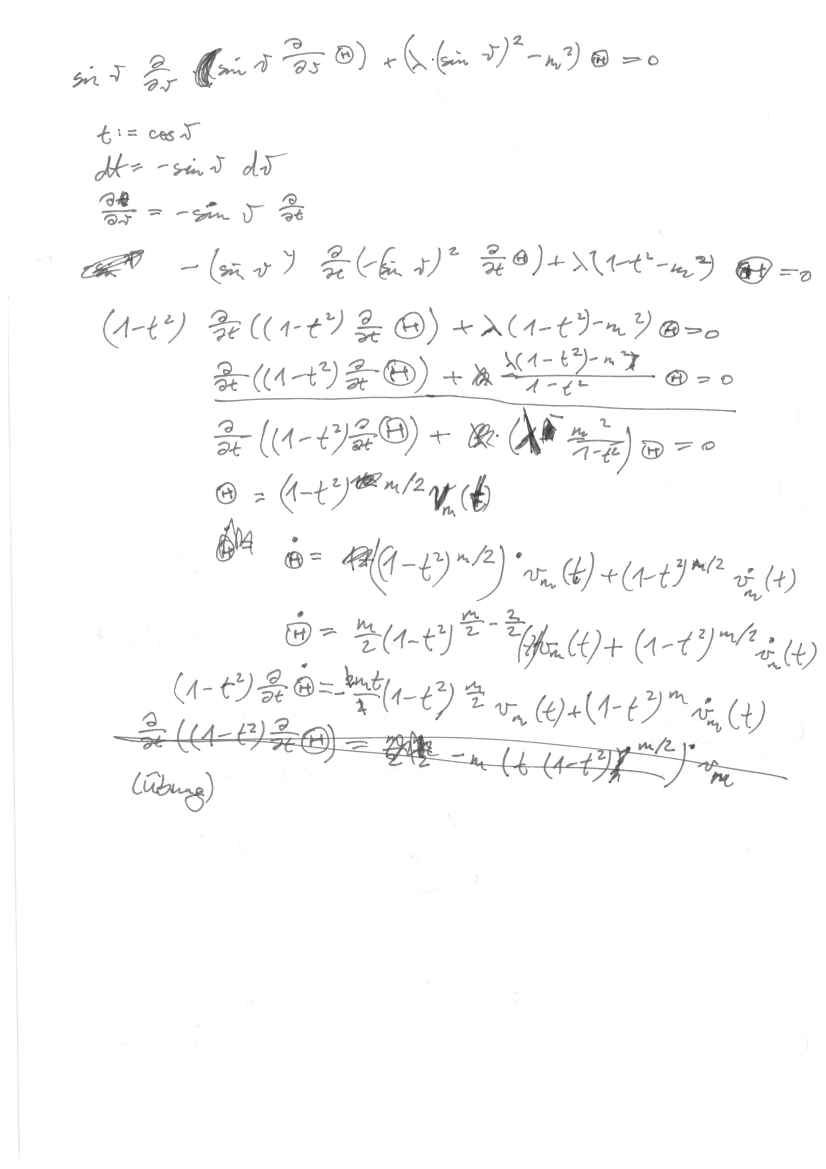 sin ϑ ∂/∂ϑ (sin ϑ ∂/∂ϑ Θ) + (λ·(sin ϑ)² − m²) Θ = 0
t := cos ϑ
dt = − sin ϑ dϑ
∂/∂ϑ = − sin ϑ ∂/∂t
− (sin ϑ)² ∂/∂t (−(sin ϑ)² ∂/∂t Θ) + λ(1−t²−m²) Θ = 0
(1−t²) ∂/∂t ((1−t²) ∂/∂t Θ) + λ(1−t²)−m²) Θ = 0
∂/∂t ((1−t²) ∂/∂t Θ) + (λ(1−t²)−m²)/(1−t²) Θ = 0
∂/∂t ((1−t²) ∂/∂t Θ) + (λ − m²/(1−t²)) Θ = 0
Θ = (1−t²)^{m/2} v_m(t)
Θ̇ = ((1−t²)^{m/2})˙ v_m(t) + (1−t²)^{m/2} v̇_m(t)
Θ̇ = m/2 (1−t²)^{m/2 − 2/2} v_m(t) + (1−t²)^{m/2} v̇_m(t)
(1−t²) ∂/∂t Θ̇ = − mt (1−t²)^{m/2} v_m(t) + (1−t²)^m v̇_m(t)
∂/∂t ((1−t²) ∂/∂t Θ) = − m (t (1−t²)^{m/2})˙ v_m
(Übung)